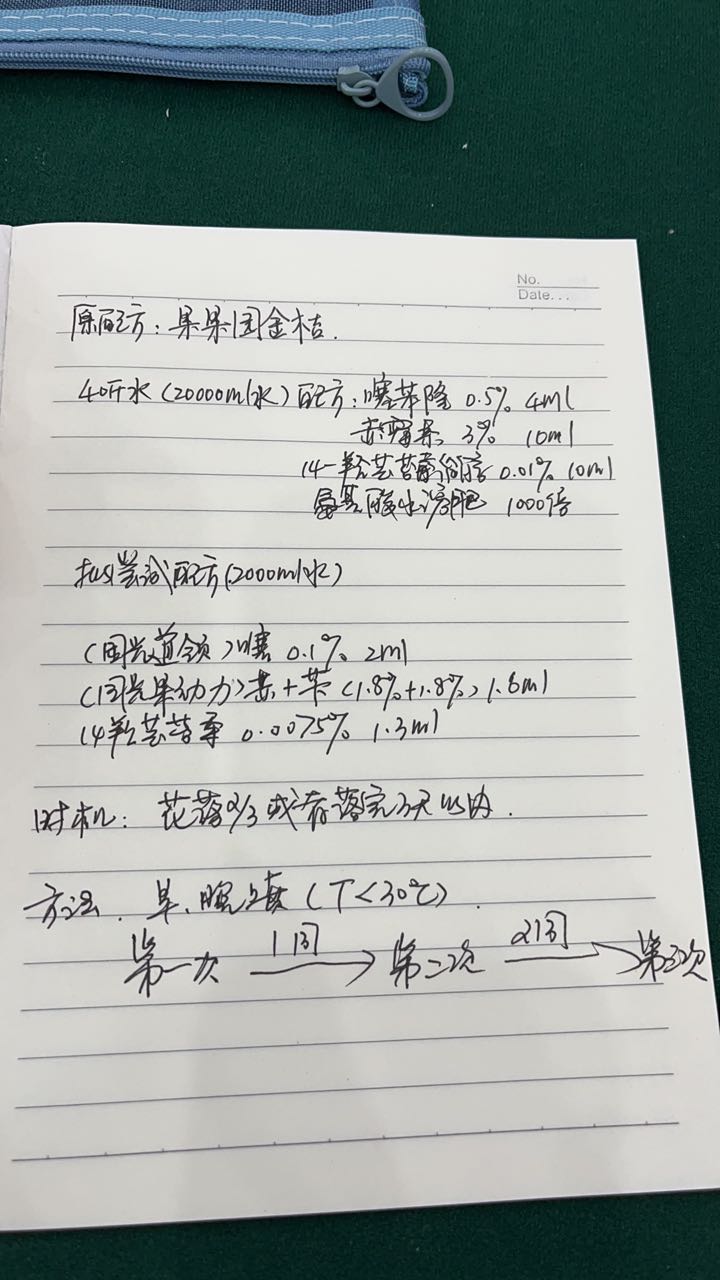 No.
Date...
原配方：果果园金桔.
40斤水（20000ml水）配方：噻苯隆 0.5% 4ml
赤霉素 3% 10ml
14-羟芸苔素甾醇 0.01% 10ml
氨基酸水溶肥 1000倍
拟尝试配方(2000ml水)
(国光道领)噻 0.1% 2ml
(国光果动力)赤+苄 (1.8%+1.8%) 1.6ml
14羟芸苔素 0.0075% 1.3ml
时机：花落2/3或者落完3天以内.
方法. 早、晚喷 (T<30℃).
第一次 1周 第二次 2周 第三次